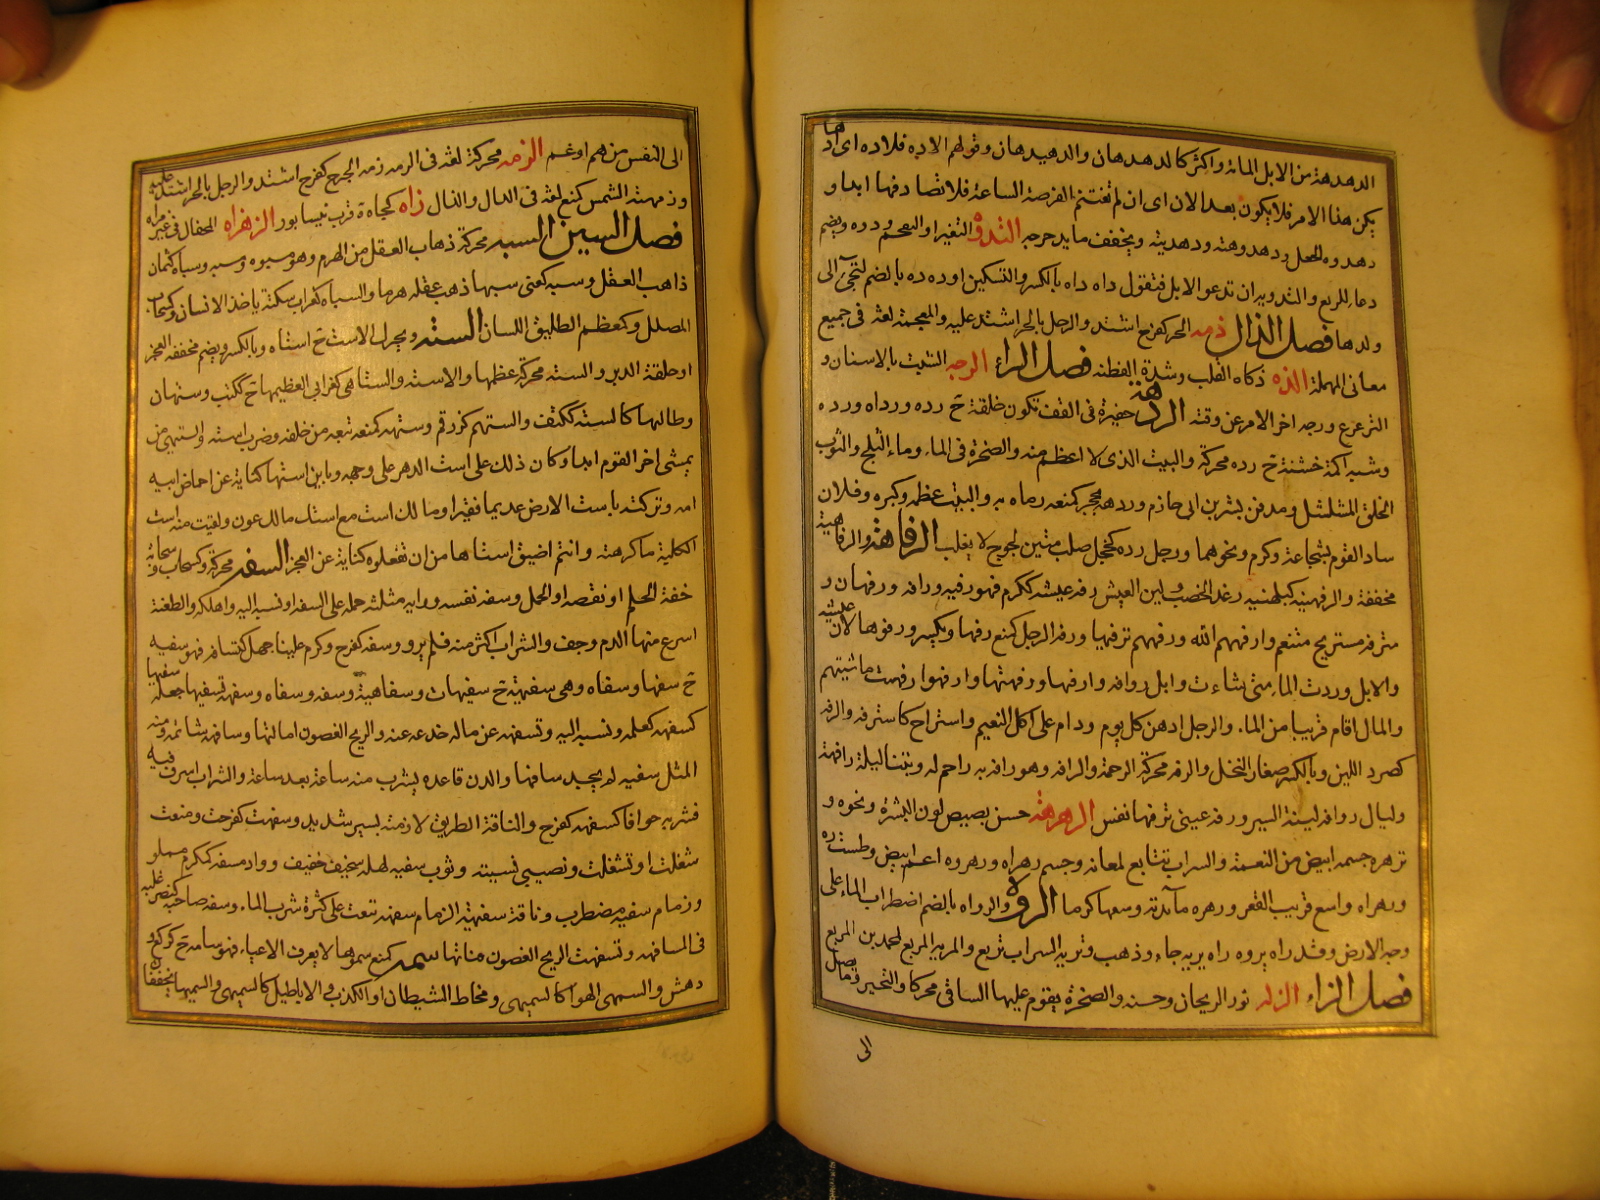 الدهدهة من الابل المائة واكثر كالدهدهان والدهيدهان وقولهم الاده فلاده اى اذا
يكن هذا الامر فلا يكون بعد الان اى ان لم تغتنم الفرصة الساعة فلا تصادفها ابدا و
دهدوه الجعل ودهدوهته ودهديته ويخفف ما يدحرجه
دعاء للربع والتدويه ان تدعو الابل فتقول داه داه بالكسر والتسكين او ده ده بالضم لتجئ الى
ولدها فصل الذال ذمه الحر كفرح اشتد والرجل بالحر اشتد عليه والمعجمة لغة فى جميع
معانى المهملة الذه ذكاء القلب وشدة الفطنه فصل الراء الرجه التثبت بالاسنان و
التزعزع ورجه اخر الامر عن وقته الردهة حفيرة فى القف تكون خلقة ج رده ورداه ورده
وشبه اكمة خشنة ج رده محركة والبيت الذى لا اعظم منه والصخرة فى الماء وماء الثلج والثوب
الخلق المسلسل ومدفن بشر بن ابى حازم وردهه بحجر كمنعه رماه به والبيت عظمه وكبره وفلان
ساد القوم بشجاعة وكرم ونحوهما ورجل رده كخجل صلب متين لجوج لا يغلب الرفاهة والرفاهية
مخففة والرفهنية كبلهنية رغد الخصب ولين العيش رفه عيشه ككرم فهو رفيه ورافه ورفهان و
مترفه مستريح متنعم وارفههم الله ورفههم ترفيها ورفه الرجل كمنع رفها ويكسر ورفوها لان عيشه
والابل وردت الماء متى شاءت وابل روافه وارفهها ورفهتها وارفهوا رفهت ماشيتهم
والمال اقام قريبا من الماء والرجل ادهن كل يوم ودام على اكل النعيم واستراح كاسترفه والرفه
كصرد التبن وبالكسر صغار النخل والرفه محركة الرحمة والرافه وهو رافه به راحم له وبيننا ليلة رافهة
وليال روافه لينة السير ورفه عينى ترفيها نفس الرهرهة حسن بصيص لون البشرة ونحوه و
ترهره جسمه ابيض من النعمة والسراب تتابع لمعانه وجسم رهراه ورهروه ابيض وطست ره
ورهراه واسع قريب القعر ورهره مائدته وسعها كرما الروه والرواه بالضم اضطراب الماء على
وجه الارض وقد راه يروه راه يريه جاء وذهب وتريه السراب تريع والمريه المريع لمحمد بن المريع
فصل الزاء الزله نور الريحان وحسنه والصخرة يقوم عليها الساقى محركا والتحير وما يصل
الى
الى النفس من هم او غم الزمه محركة لغة فى الرمه زمه الحر كفرح اشتد والرجل بالحر اشتد عليه
وزمهته الشمس كمنع لغة فى الدال والذال زاه كجاه ة قرب نيسابور الزهزاه المختال فى غير مراه
فصل السين السبه محركة ذهاب العقل من الهرم وهو مسبوه ومسبه وسباه كثمان
ذاهب العقل وسبه كعنى سبها ذهب عقله هرما والسباه كغراب سكتة ياخذ الانسان وكسحاب
المضلل وكمعظم الطليق اللسان السته ويحرك الاست ج استاه وبالكسر ويضم مخففة العجز
او حلقة الدبر والسته محركة عظمها والاسته والستاهى كغرابى العظيمها ج ككتب وستهان
وطالبها كالسته ككتف والستهم كزرقم وستهه كمنعه تبعه من خلفه وضرب استه والستيهى من
يمشى اخر القوم ابدا وكان ذلك على است الدهر على وجهه ويا بن استها كناية عن احماض ابيه
امه وتركته باست الارض عديما فقيرا وما لك است مع استك ما لك عون ولقيت منه است
الكلبة ما كرهته وانتم اضيق استاها من ان تفعلوه كناية عن العجز السفه محركة وكسحاب وسحابة
خفة الحلم او نقيضه او الجهل وسفه نفسه ورايه مثلثة حمله على السفه او نسبه اليه واهلكه والطعنة
اسرع منها الدم وجف والشراب اكثر منه فلم يرو وسفه كفرح وكرم علينا جهل كتسافه فهو سفيه
ج سفهاء وسفاه وهى سفيهة ج سفيهات وسفاهية وسفه وسفاه وسفهه تسفيها جعله سفيها
كسفهه كعلمه ونسبه اليه وتسفهه عن ماله خدعه عنه والريح الغصون امالتها وسافهه شاتمه ومنه
المثل سفيه لم يجد سافها والدن قاعده يشرب منه ساعة بعد ساعة والشراب اسرف فيه
فشربه جزافا كسفهه كفرح والناقة الطريق لازمته بسير شديد وسفهت كفرحت ومنعت
شغلت او تشغلت ونصيبى نسيته وثوب سفيه لهله سخيف خفيف وواد مسفه كمكرم مملو
وزمام سفيه مضطرب وناقة سفيهة الزمام سفهه تنعت على كثرة شرب الماء وسفه صاحبه كنصر غلبه
فى المسافهة وتسفهت الريح الغصون فيأتها سمه كمنع سموها لا يعرف الاعياء فهو سامه ج كركع و
دهش والسمهى الهواء كالسميهى ومخاط الشيطان او الكذب والاباطيل كالسميهى والسميهاء يخففان